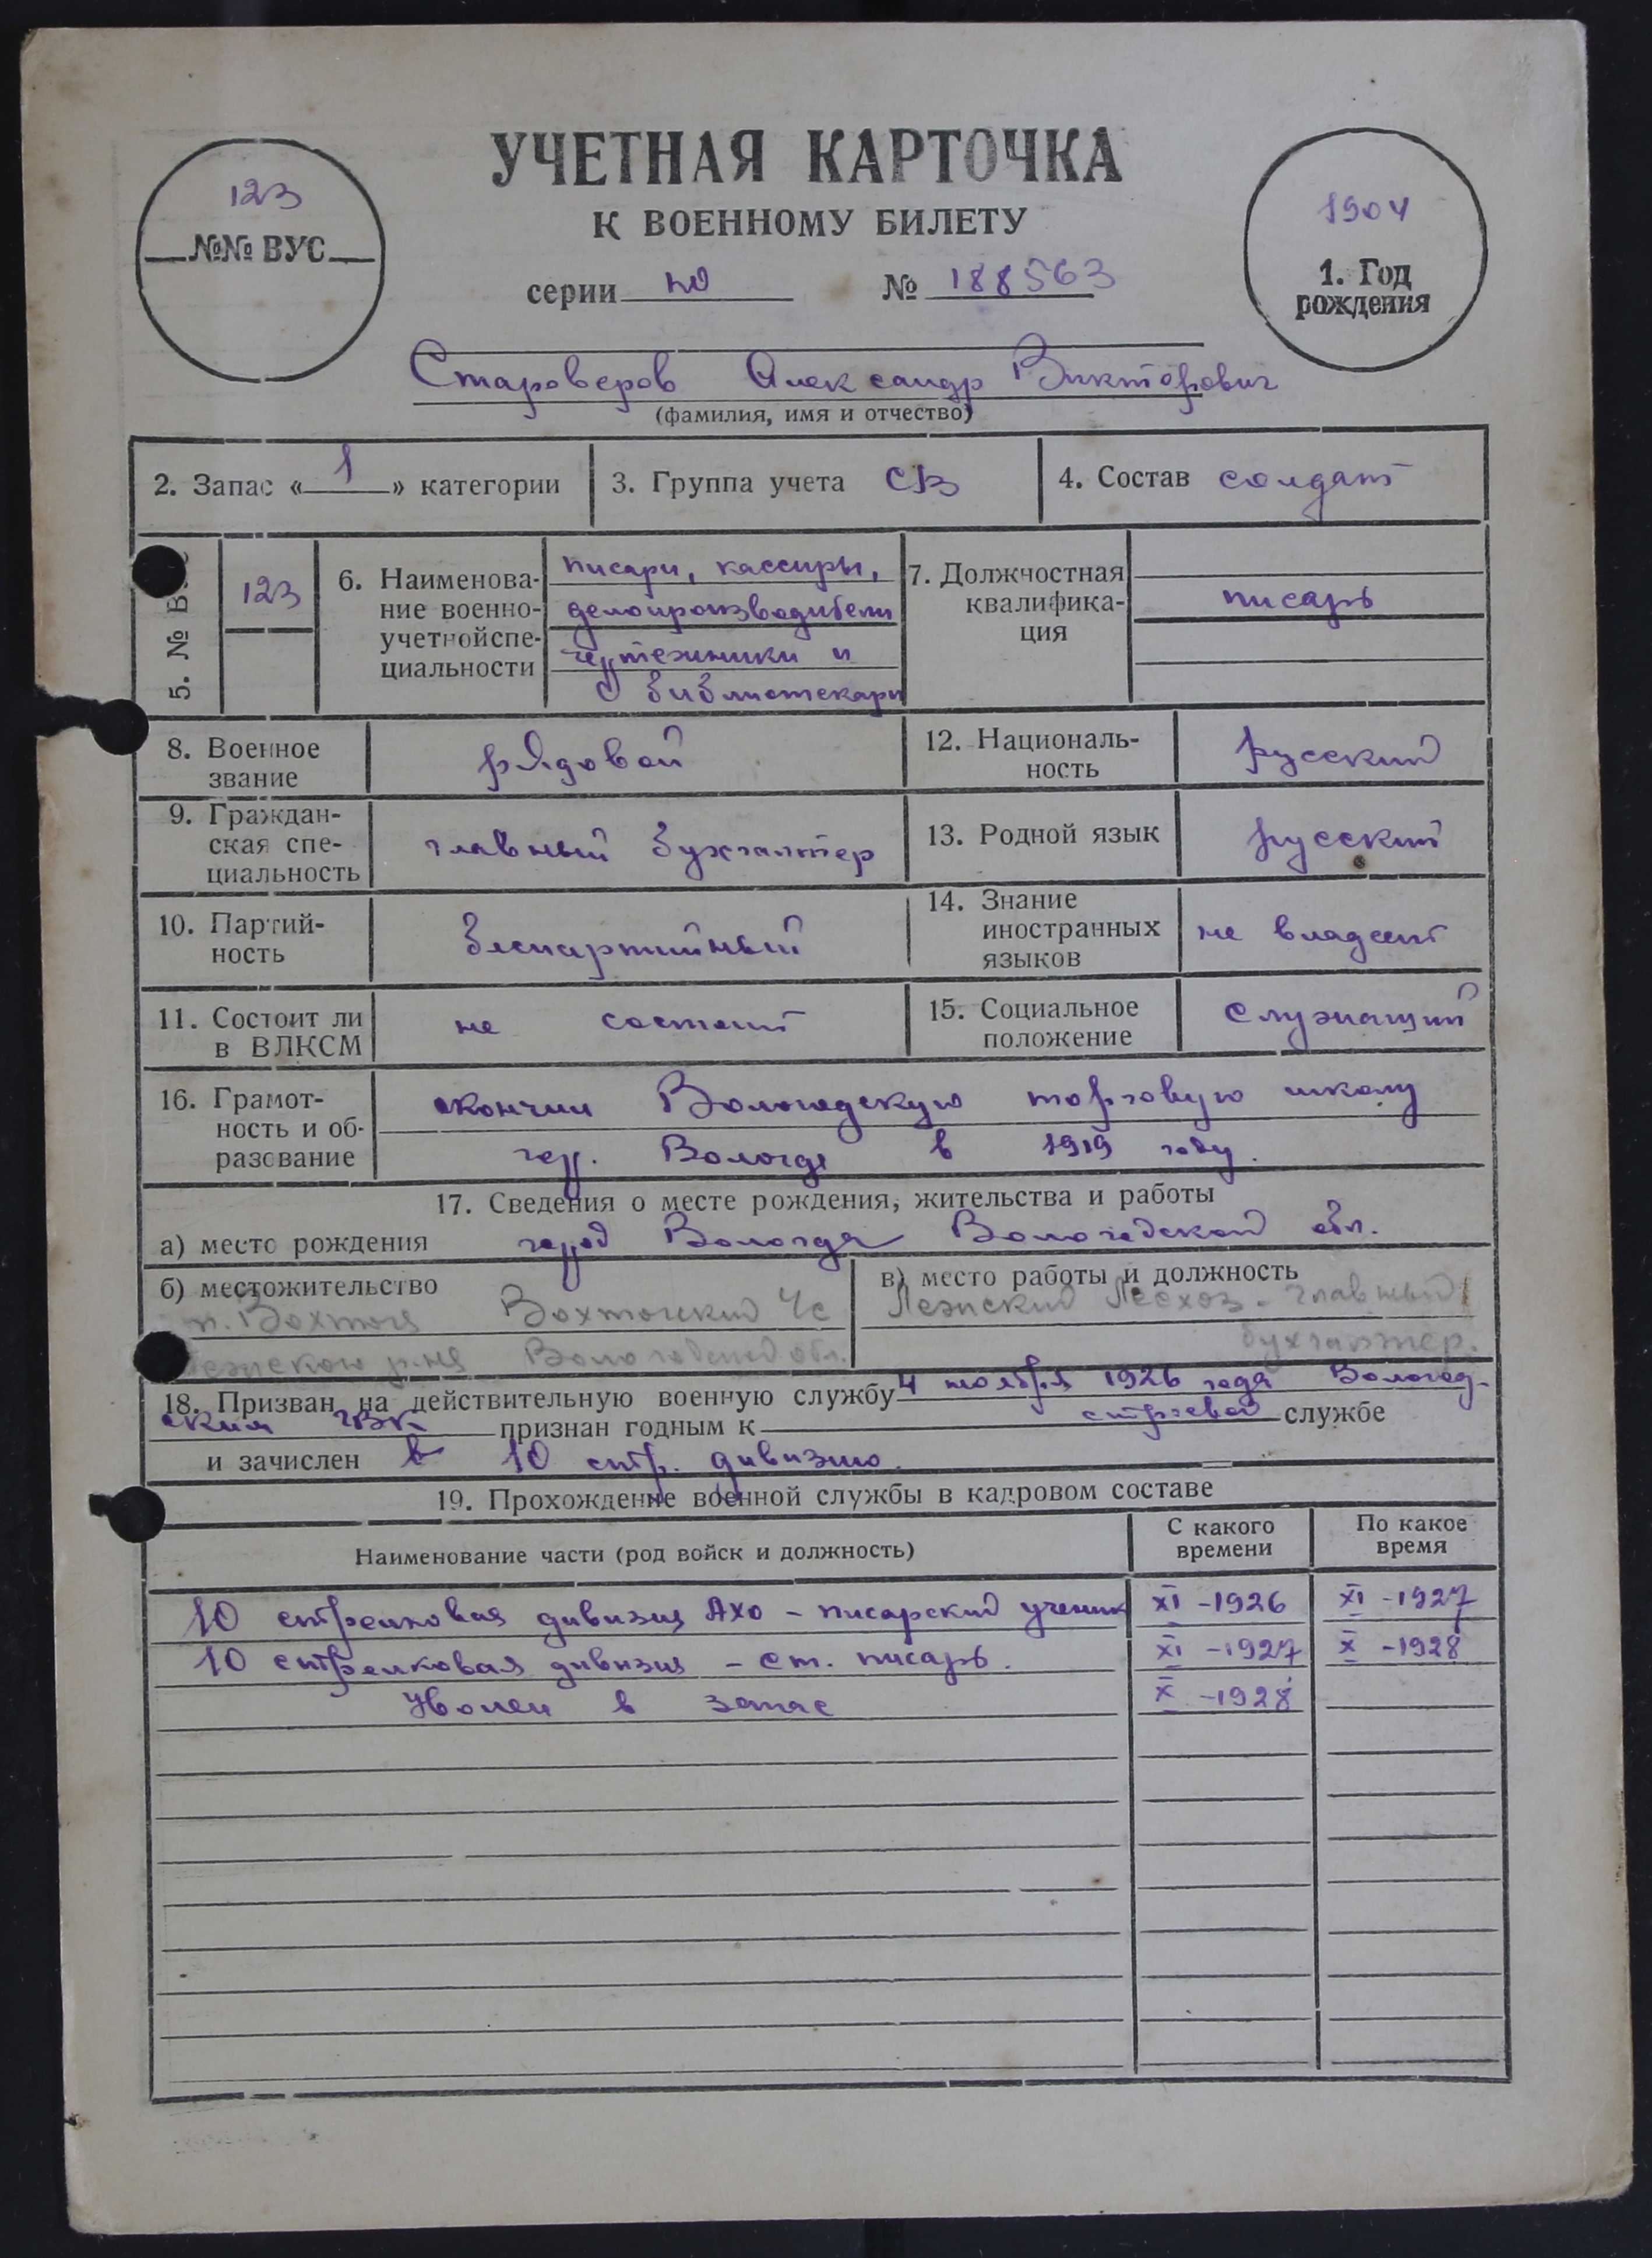 УЧЕТНАЯ КАРТОЧКА
К ВОЕННОМУ БИЛЕТУ
123
№№ ВУС
1904
1. Год
рождения
серии № 188563
Староверов Александр Викторович
(фамилия, имя и отчество)
2. Запас «1» категории
3. Группа учета СВ
4. Состав солдат
5. № В
123
6. Наименова-
ние военно-
учетной спе-
циальности
писари, кассиры,
делопроизводители
чертежники и
библиотекари
7. Должностная
квалифика-
ция
писарь
8. Военное
звание
рядовой
12. Националь-
ность
русский
9. Граждан-
ская спе-
циальность
главный бухгалтер
13. Родной язык
русский
10. Партий-
ность
беспартийный
14. Знание
иностранных
языков
не владеет
11. Состоит ли
в ВЛКСМ
не состоит
15. Социальное
положение
служащий
16. Грамот-
ность и об-
разование
окончил Вологодскую торговую школу
гор. Вологда в 1919 году.
17. Сведения о месте рождения, жительства и работы
а) место рождения город Вологда Вологодской обл.
б) местожительство
п. Вохтога Вохтожский с
р-на Вологодской обл.
в) место работы и должность
Лежский Лесхоз - главный
бухгалтер.
18. Призван на действительную военную службу 4 ноября 1926 года Вологод-
ским ГВК признан годным к строевой службе
и зачислен в 10 стр. дивизию.
19. Прохождение военной службы в кадровом составе
Наименование части (род войск и должность)
С какого
времени
По какое
время
10 стрелковая дивизия АХО - писарский ученик XI - 1926 XI - 1927
10 стрелковая дивизия - ст. писарь. XI - 1927 X - 1928
Уволен в запас X - 1928